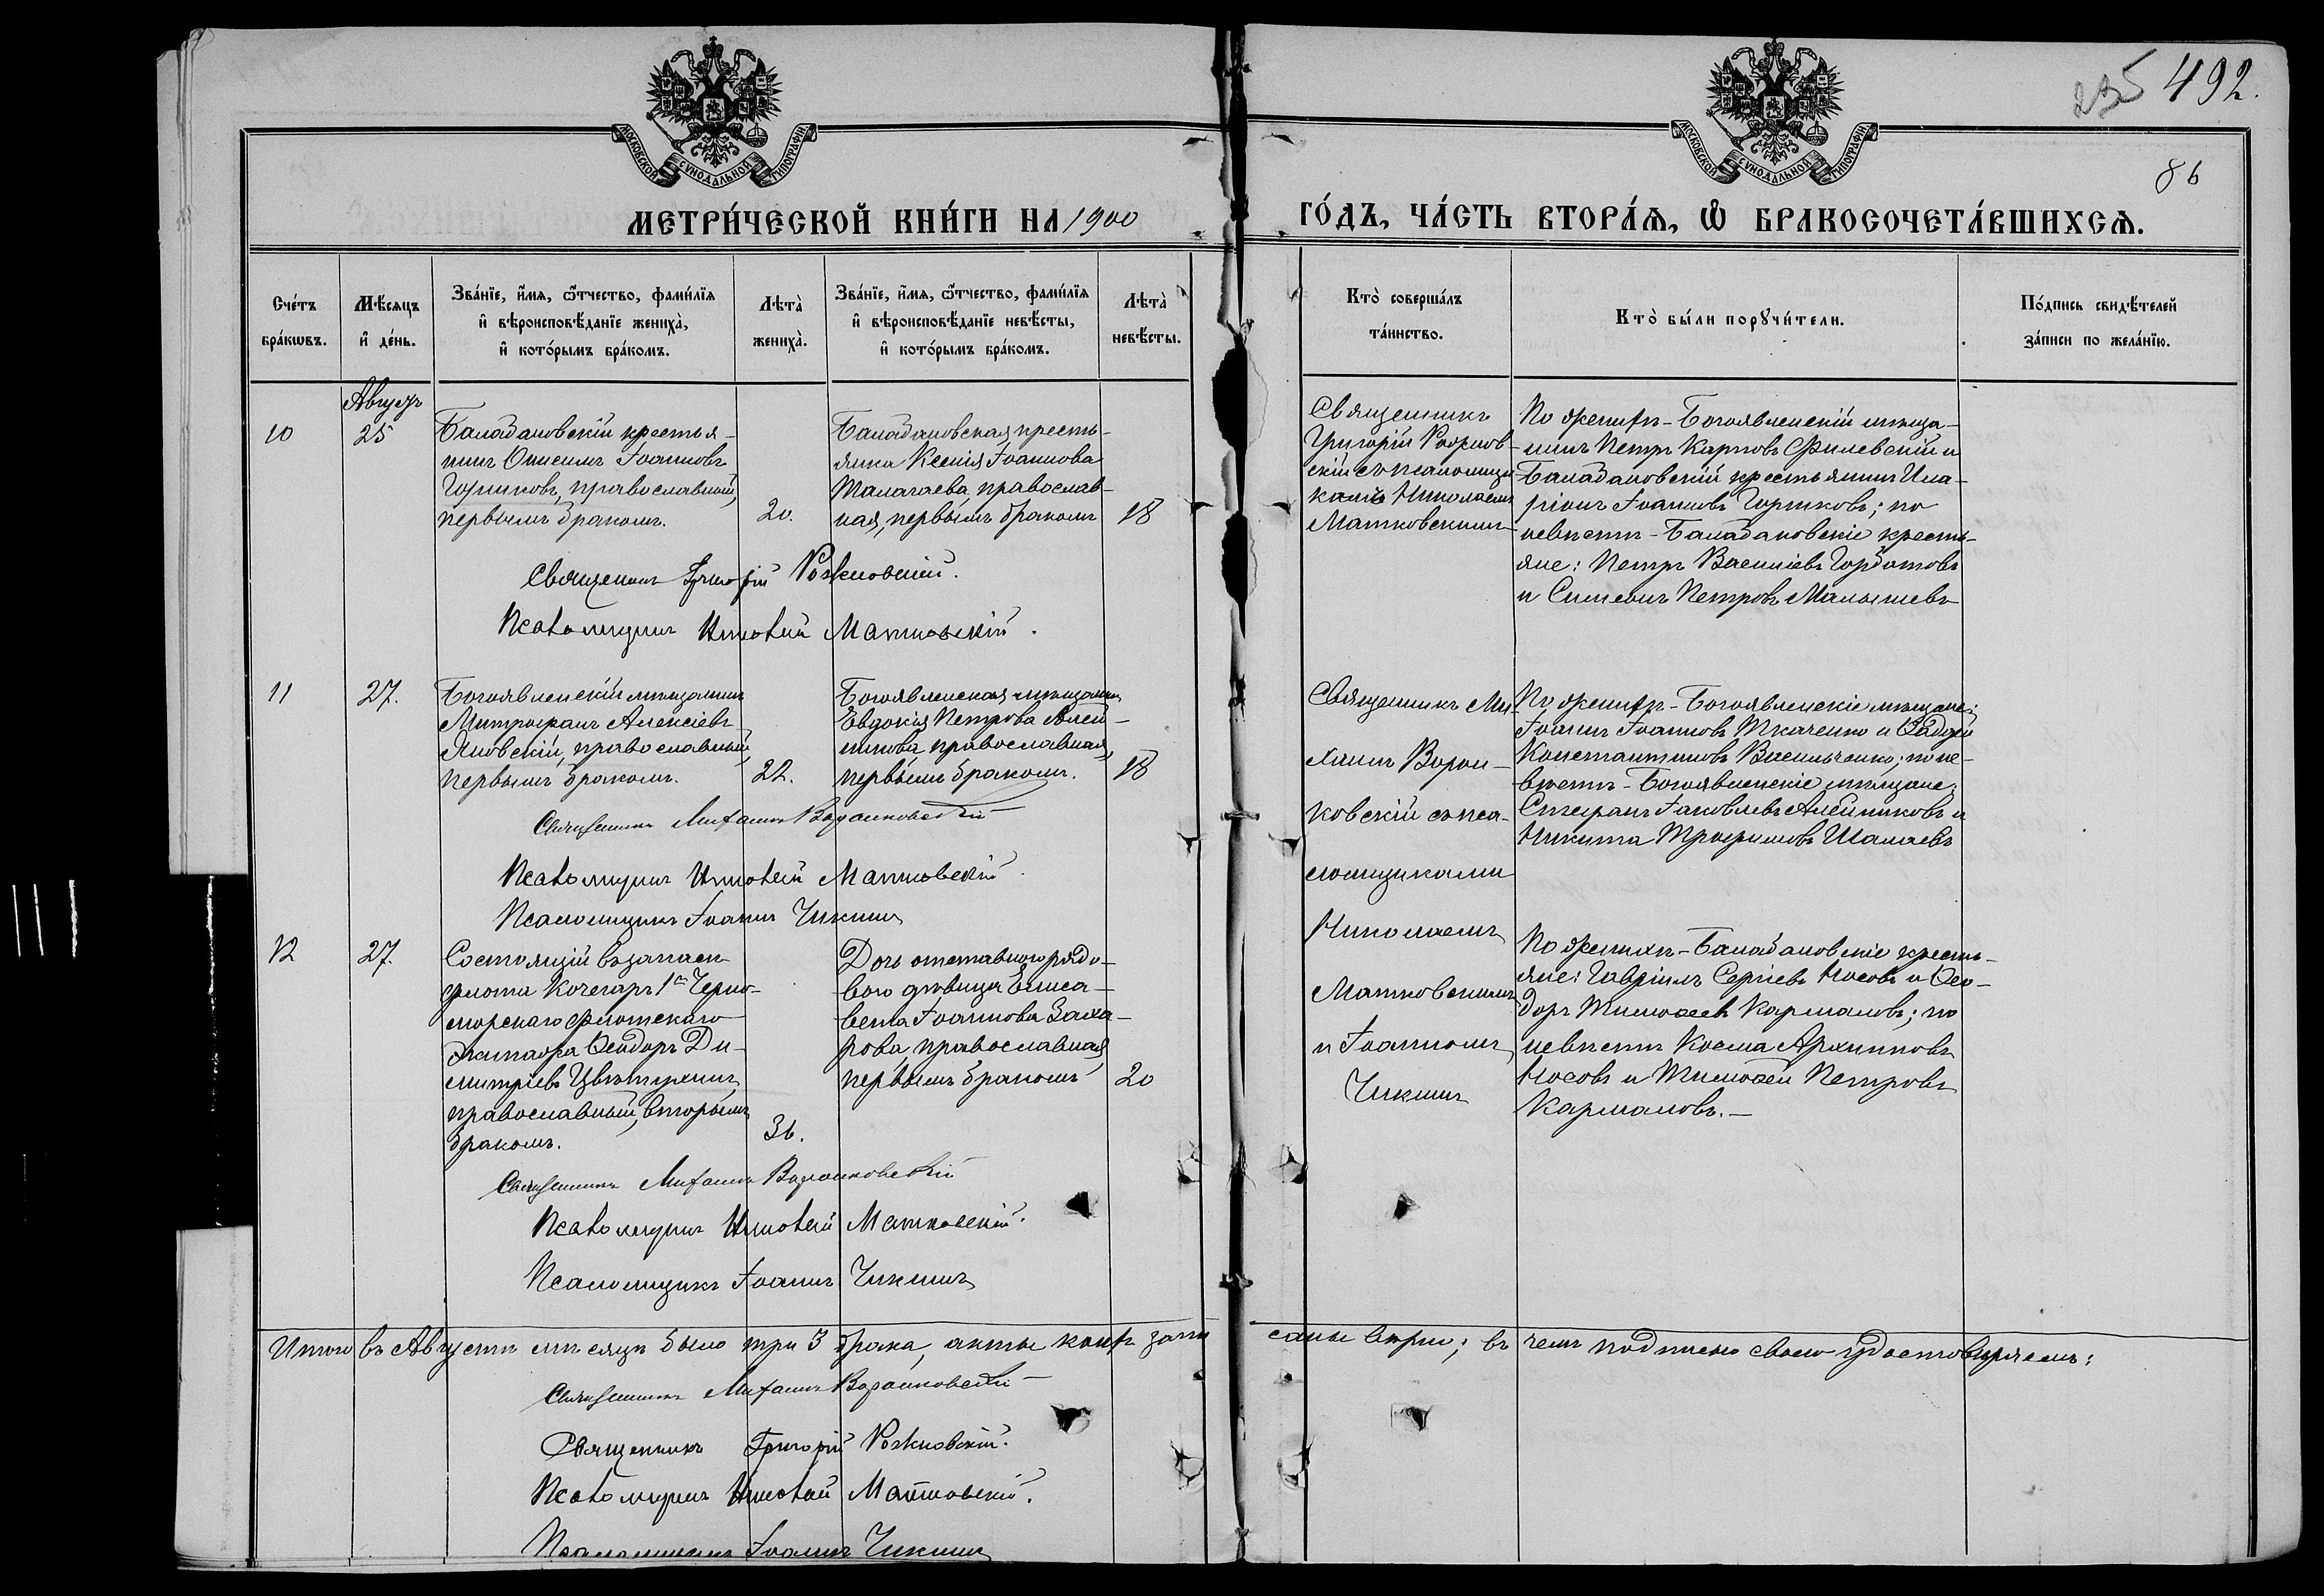 235 492.
86
МОСКОВСКОЙ СѴНОДАЛЬНОЙ ТИПОГРАФІИ
МОСКОВСКОЙ СѴНОДАЛЬНОЙ ТИПОГРАФІИ
МЕТРИ́ЧЕСКОЙ КНИ́ГИ НА 1900
ГО́ДЪ, ЧА́СТЬ ВТОРА́Ѧ, Ѽ БРАКОСОЧЕТА́ВШИХСѦ.
Сче́тъ
бра́кѡвъ.
Мѣ́сѧцъ
и҆ де́нь.
Зва́нїе, и҆́мѧ, ѻ҆́тчество, фами́лїѧ
и҆ вѣроисповѣ́данїе жениха̀,
и҆ кото́рымъ бра́комъ.
Лѣта̀
жениха̀.
Зва́нїе, и҆́мѧ, ѻ҆́тчество, фами́лїѧ
и҆ вѣроисповѣ́данїе невѣ́сты,
и҆ кото́рымъ бра́комъ.
Лѣта̀
невѣ́сты.
Кто̀ соверша́лъ
та́инство.
Кто̀ бы́ли порꙋчи́тели.
По́дпись свидѣ́телей
за́писи по жела́нїю.
Августъ
10
25
Баладановскій крестья-
нинъ Онисимъ Іоанновъ
Горшковъ, православный,
первымъ бракомъ.
20.
Баладановская кресть-
янка Ксенія Іоаннова
Малагаева, православ-
ная, первымъ бракомъ
18
Священникъ
Григорій Рожнов-
скій съ псаломщи-
комъ Николаемъ
Матковскимъ
По женихѣ - Богоявленскій мѣща-
нинъ Петръ Карповъ Филевскій и
Баладановскій крестьянинъ Ила-
ріонъ Іоанновъ Горшковъ; по
невѣстѣ - Баладановскіе кресть-
яне: Петръ Василіевъ Горбатовъ
и Симеонъ Петровъ Малышевъ
Священникъ Григорій Рожновскій.
Псаломщикъ Николай Матковскій.
11
27.
Богоявленскій мѣщанинъ
Митрофанъ Алексіевъ
Яновскій, православный,
первымъ бракомъ.
22.
Богоявленская мѣщанка
Евдокія Петрова Алей-
никова, православная,
первымъ бракомъ.
18
Священникъ Ми-
хаилъ Ворон-
ковскій съ пса-
ломщиками
Николаемъ
Матковскимъ
и Іоанномъ
Чикинъ
По женихѣ - Богоявленскіе мѣщане:
Іоаннъ Іоанновъ Ткаченко и Ѳаддей
Константиновъ Васильченко; по не-
вѣстѣ - Богоявленскіе мѣщане:
Стефанъ Іаковлевъ Алейниковъ и
Никита Трофимовъ Шалаевъ
Священникъ Михаилъ Воронковскій
Псаломщикъ Николай Матковскій.
Псаломщикъ Іоаннъ Чикинъ
12
27.
Состоящій въ запасѣ
флота кочегаръ 1й Черно-
морскаго Флотскаго
экипажа Ѳеодоръ Ди-
митріевъ Цвѣтухинъ,
православный, вторымъ
бракомъ.
36.
Дочь отставного рядо-
вого дѣвица Елиса-
вета Іоаннова Заха-
рова, православная,
первымъ бракомъ
20
По женихѣ - Баладановскіе кресть-
яне: Гавріилъ Сергіевъ Носовъ и Ѳео-
доръ Тимоѳеевъ Кармановъ; по
невѣстѣ Косма Архиповъ
Носовъ и Тимоѳей Петровъ
Кармановъ. —
Священникъ Михаилъ Воронковскій
Псаломщикъ Николай Матковскій.
Псаломщикъ Іоаннъ Чикинъ
Итого въ Августѣ мѣсяцѣ было три 3 брака, акты коихъ запи саны вѣрно; въ чемъ подписью своею удостовѣряемъ:
Священникъ Михаилъ Воронковскій
Священникъ Григорій Рожновскій.
Псаломщикъ Николай Матковскій.
Псаломщикъ Іоаннъ Чикинъ